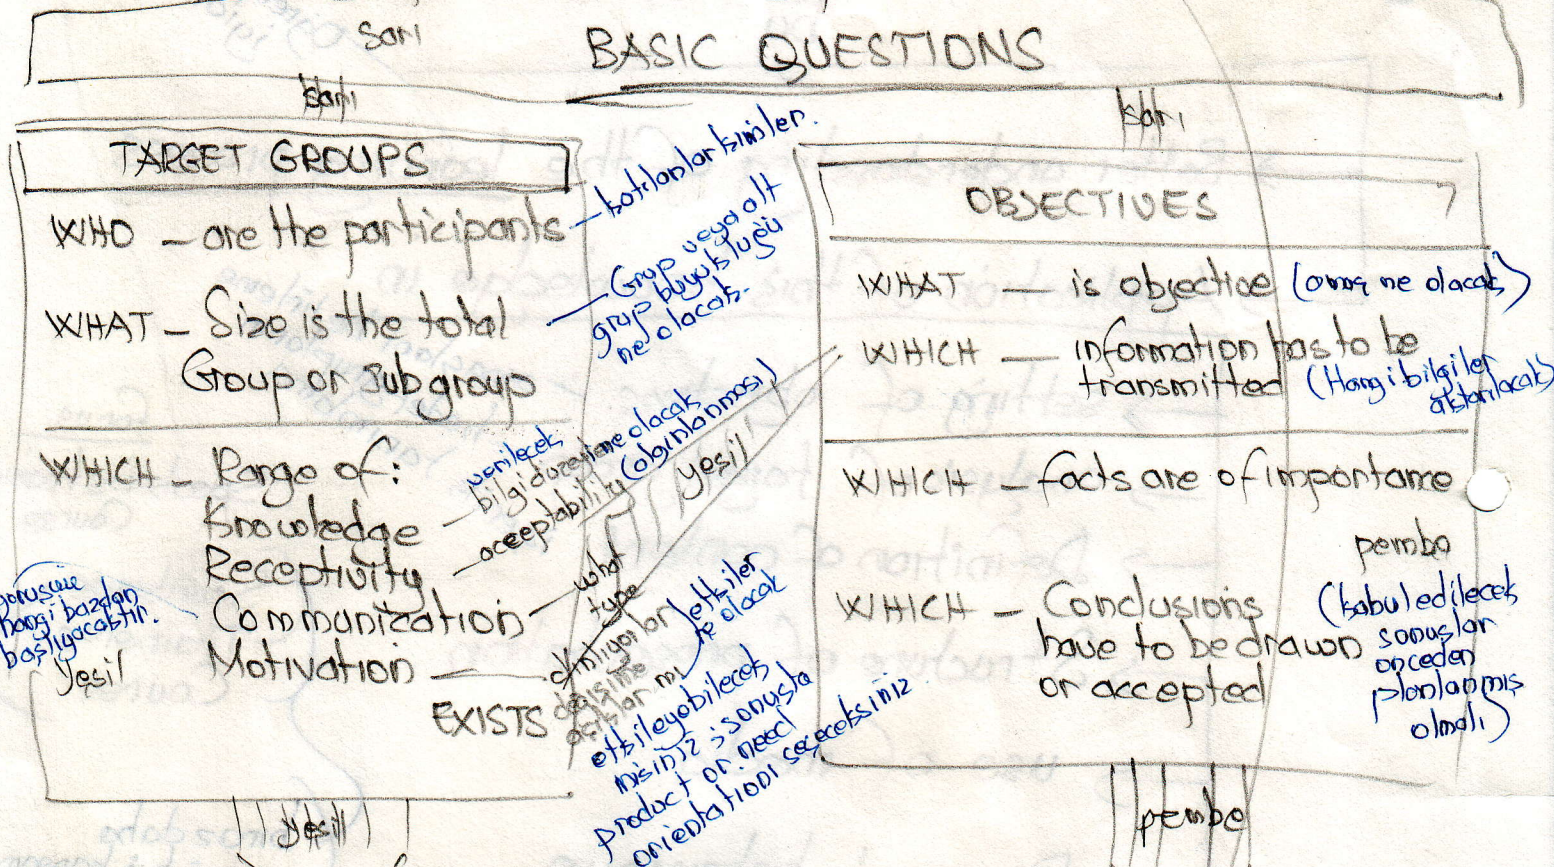 sarı
BASIC QUESTIONS
sarı
sarı
TARGET GROUPS
WHO – are the participants
katılanlar kimler.
WHAT – Size is the total
Group or subgroup
Grup veya alt
grup büyüklüğü
ne olacak.
WHICH – Range of:
Knowledge
verilecek
bilgi düzeyi ne olacak
Receptivity
acceptability (algılanması)
Communization
what
type
görüşme
hangi bazdan
başlıyacaktır.
Motivation
dinliyorlar
değişime
açıklar mı
EXISTS
yeşil
etkiler
ne olacak
etkileyebilecek
misiniz; sonuçta
product or need
orientationı seçeceksiniz
yeşil
yeşil
OBJECTIVES
WHAT — is objective (amaç ne olacak)
WHICH — information has to be
transmitted (Hangi bilgiler
aktarılacak)
WHICH – facts are of importance
pembe
WHICH – Conclusions
have to be drawn
or accepted
(kabul edilecek
sonuçlar
önceden
planlanmış
olmalı)
pembe